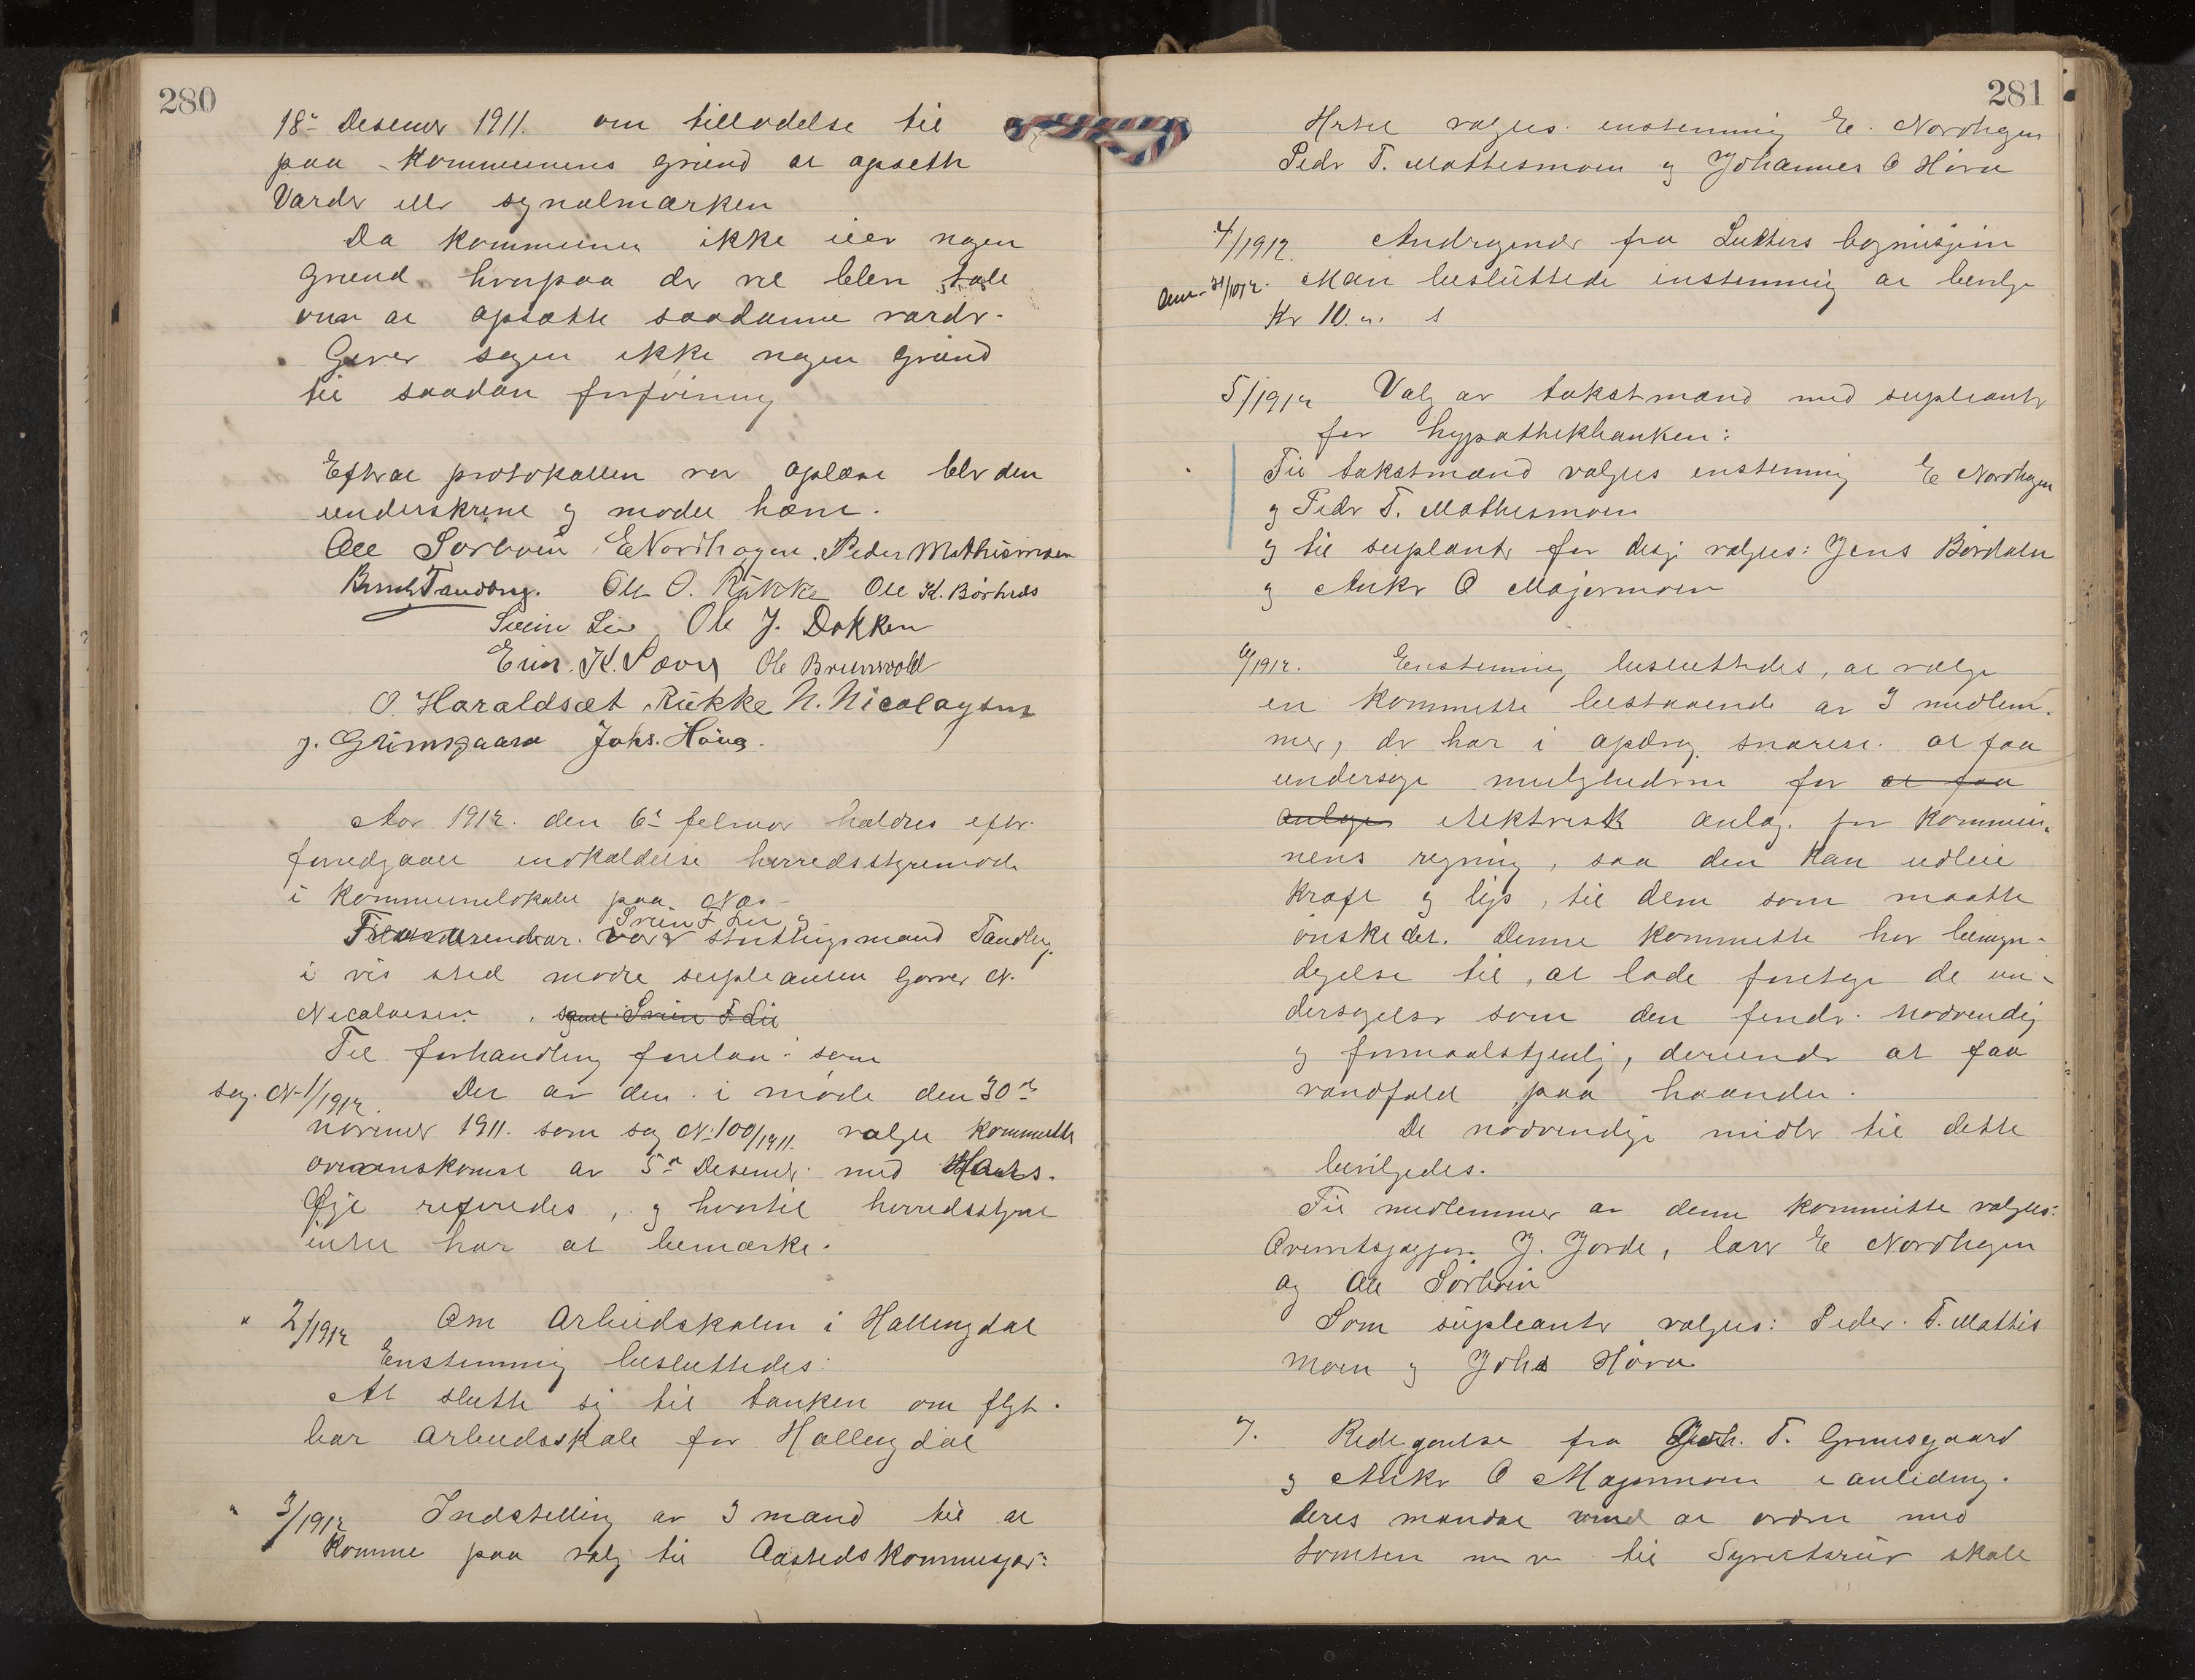 280
18de Desember 1911. om tilladelse til
paa Kommunens grund at opsette
Varder eller synalmærken
Da Kommunen ikke eier nogen
Grund hvorpaa der vil blen tale
om at opsætte saadanne varder.
Giver sagen ikke nogen grund
til saadan forføining
Efterat protokollen var oplæst blev den
underskreve og mødet hævet.
Ole Sørbøen E Nordhagen. Peder Mathismoen
Bernh Tandberg. Ole O. Rukke Ole K. Børtnes
Svein Lie Ole J. Dokken
Eivin K. Sævre Ole Brunsvold
O. Haraldset Rukke N. Nicolaysen
J. Grimsgaard Johs. Høva.
Aar 1912. den 6te februar holdtes efter
foredgaaet indkaldelse herredsstyremøde
i Kommunelokalet paa Næs
Svein F Lie og
Fraværende var stortingsmand Tandberg.
i vis sted mødte supleanten Garver N.
Nicolaisen, samt Svein F. Lie
Til forhandling forelaa: som
sag. N. 1/1912. Det av den i møde den 30de
november 1911. som sag N: 100/1911. valgte kommitte
overenskomst av 5te Desember med Hans
Øye refereredes, og hvortil herredsstyret
intet har at bemærke.
" 2/1912 Om Arbeidskolen i Hallingdal
Enstemmig besluttedes:
At slutte sig til tanken om flyt-
bar Arbeidsskole for Hallingdal
" 3/1912 Indstilling av 3 mænd til at
Komme paa valg til Aastedskommisjor:
281
Hertil valgtes enstemmig E. Nordhagen
Peder T. Mathesmoen og Johannes O Høva
4/1912. Andragende fra Lutters bogmisjon
Man besluttede enstemmig at bevilge
Kr 10.
5/1912 Valg av takstmænd med supleanter
for hypothekbanken:
Til takstmænd valgtes enstemmig E Nordhagen
og Peder T. Mathesmoen
og til suplanter for disse valgtes: Jens Børdalen
og Anker O Majormoen
6/1912. Enstemmig besluttedes, at vælge
en Kommitte bestaaende av 3 medlem-
mer, der har i opdrag snarest at faa
undersøge mulighederne for at faa
anlegge elektrisk anlæg for kommu-
nens regning, saa den kan udleie
kraft og lys, til dem som maatte
ønske det. Denne Kommitte har bemyn-
digelse til, at lade foretage de un-
dersøgelser som den finder nødvendig
og formaalstjenlig, derunder at faa
vandfald paa haanden.
De nødvendige midler til dette
bevilgedes.
Til medlemmer av denne kommitte valgtes:
J. Jorde, lærer E Nordhagen
og Ole Sørbøen
Som supleanter valgtes: Peder T. Mathis
moen og Johs Høva
7. Redegjørelse fra Joh. T. Grimsgaard
og Anker O Majormoen i anledning
deres mandat med at ordne med
tomten m v. til Syvertsrud skole